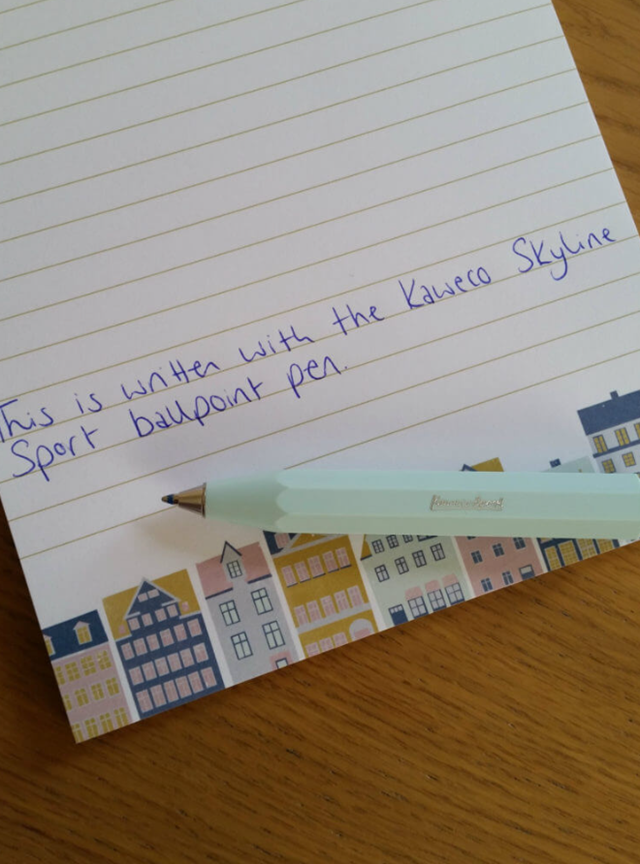 This is written with the Kaweco Skyline
Sport ballpoint pen.